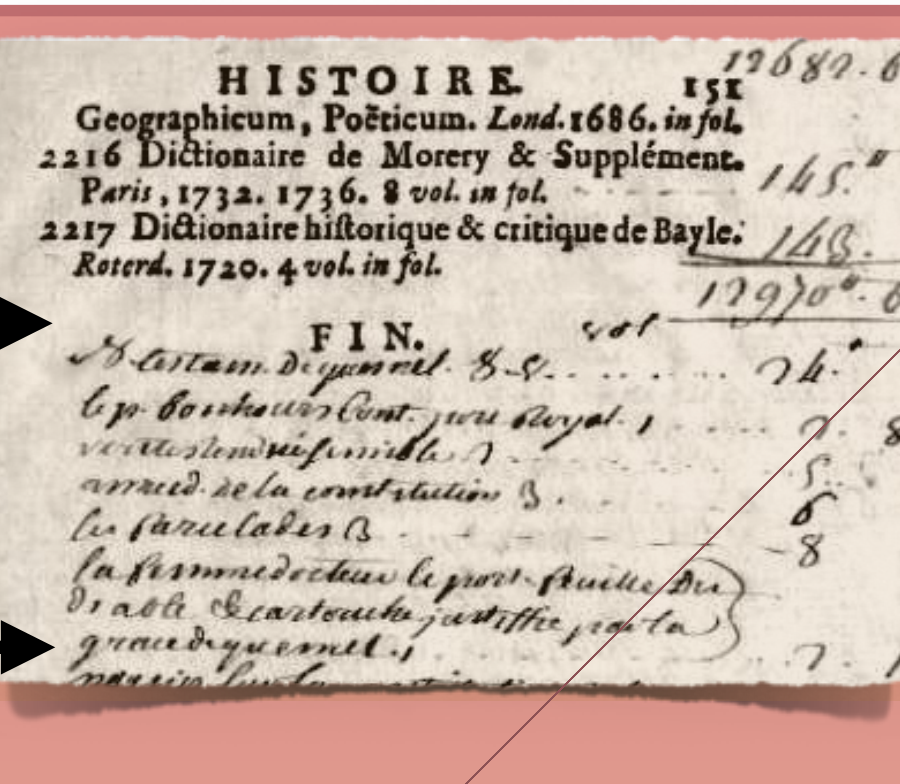 12682. 6
HISTOIRE. 151
Geographicum, Poëticum. Lond. 1686. in fol.
2216 Dictionaire de Morery & Supplément.
Paris, 1732. 1736. 8 vol. in fol. 145. "
2217 Dictionaire historique & critique de Bayle. 143.
Roterd. 1720. 4 vol. in fol.
12970". 6
FIN. vol
testam. de quesnel. 8 24.
le p. bouhours Cont. port Royal. 1 2. 8
5.
anecd. de la constitution 3. 6
les sarcelades 3 8
la femme docteur le port-feuille Du
diable & cartouche justiffié par la
grace de quesnel. 1 2.